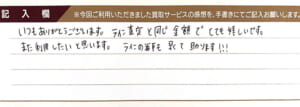 記入欄 ※今回ご利用いただきました買取サービスの感想を、手書きにてご記入お願いします。
いつもありがとうございます。 ラインに査定と同じ金額でとても嬉しいです。
また利用したいと思います。 ラインの返事も早くて助かります!!!